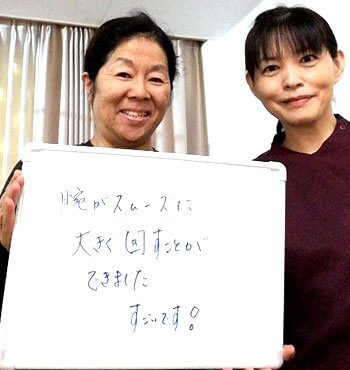 腕がスムーズに
大きく回すことが
できました
すごいです！